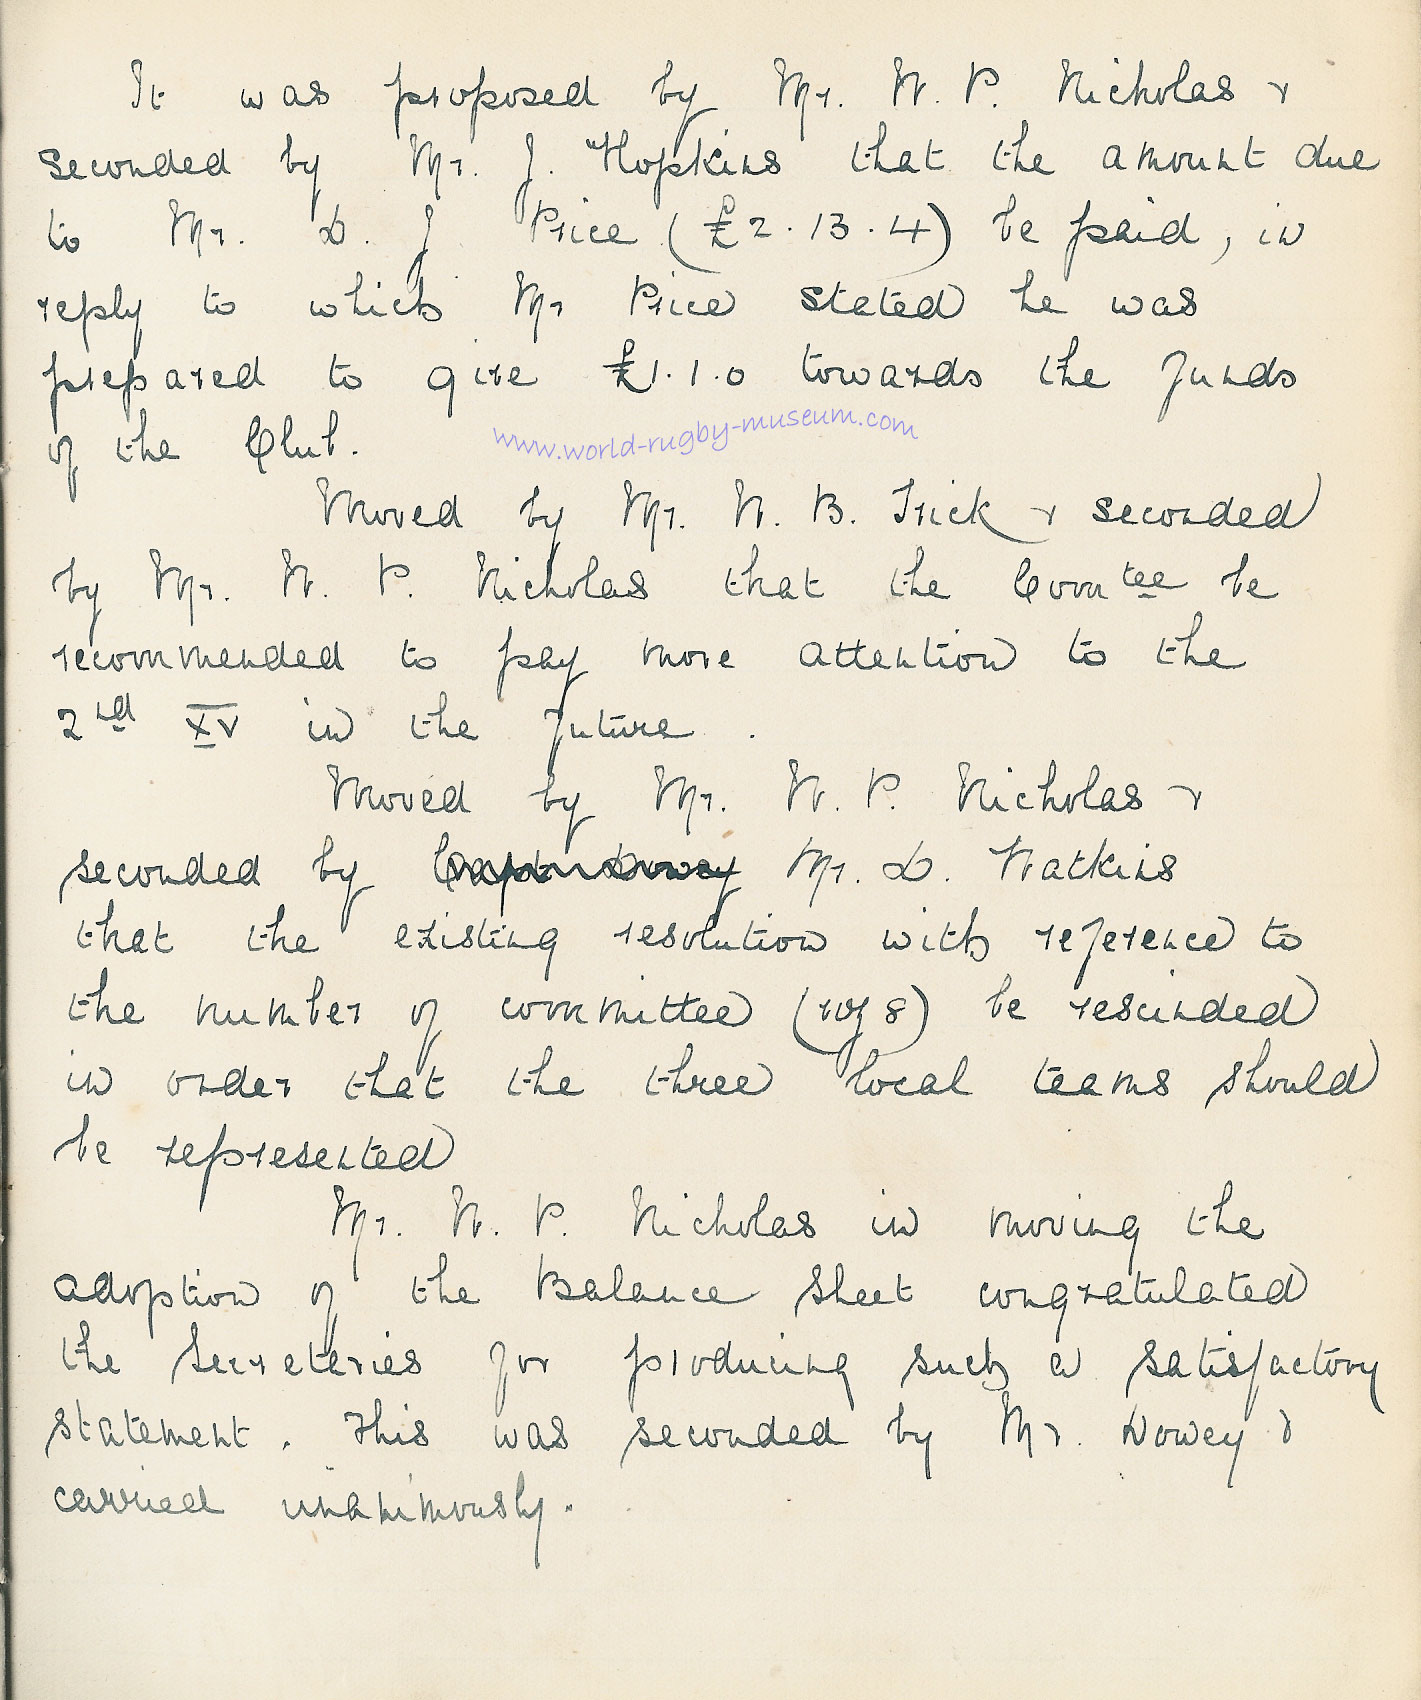 It was proposed by Mr. W. P. Nicholas &
seconded by Mr. J. Hopkins that the amount due
to Mr. D. J Price (£2.13.4) be paid, in
reply to which Mr Price stated he was
prepared to give £1.1.0 towards the funds
of the Club.
www.world-rugby-museum.com
Moved by Mr. W. B. Trick & seconded
by Mr. W. P. Nicholas that the Comtee be
recommended to pay more attention to the
2nd XV in the future.
Moved by Mr. W. P. Nicholas &
seconded by Mr. D. Watkins
that the existing resolution with reference to
the number of committee (of 8) be rescinded
in order that the three local teams should
be represented
Mr. W. P. Nicholas in moving the
adoption of the Balance Sheet congratulated
the Secreteries for producing such a satisfactory
statement. This was seconded by Mr. Dowey &
carried unanimously.